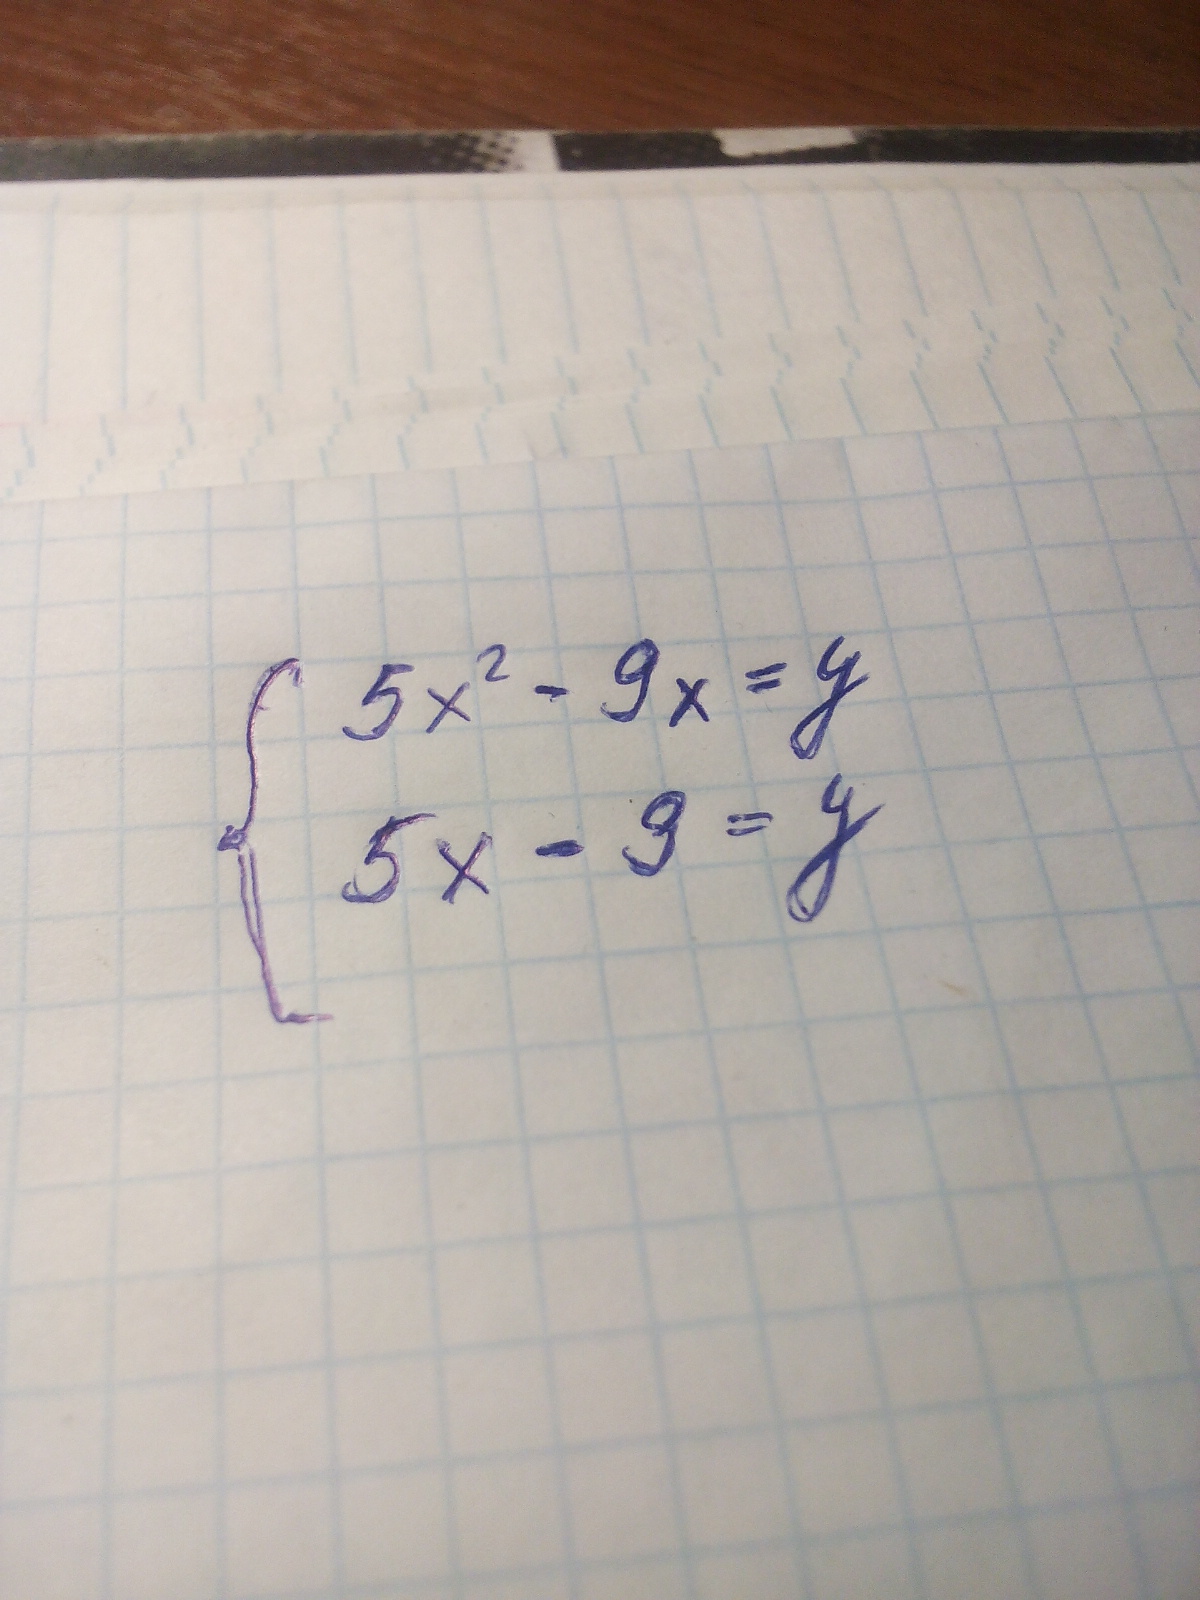 5x² - 9x = y
5x - 9 = y